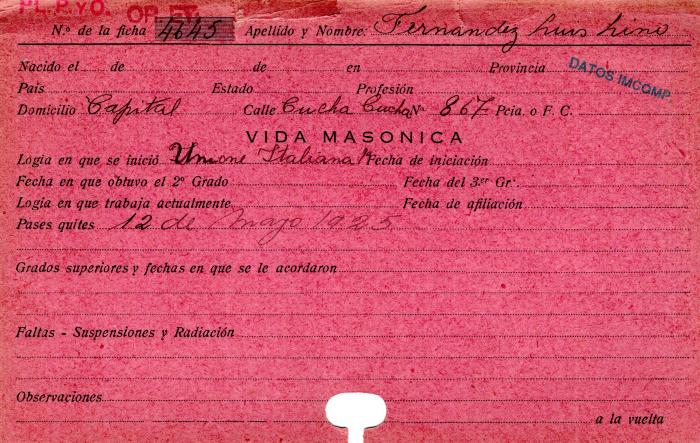 PL. P. YO. OP. ET.
N.º de la ficha 4645 Apellido y Nombre: Fernandez Luis Lino
Nacido el de de en Provincia
DATOS IMCOMP
País Estado Profesión
Domicilio Capital Calle Cucha Cucha Nº 867 Pcia. o F. C.
VIDA MASONICA
Logia en que se inició Unione Italiana Fecha de iniciación
Fecha en que obtuvo el 2º Grado Fecha del 3.er Gr.
Logia en que trabaja actualmente Fecha de afiliación
Pases quites 12 de Mayo 1925
Grados superiores y fechas en que se le acordaron
Faltas - Suspensiones y Radiación
Observaciones
a la vuelta